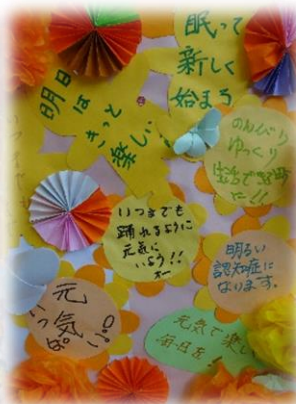 眠って
新しく
始まろ
明日
は
きっと
楽しい
のんびり
ゆっくり
生活できる町
に!!
いつまでも
踊れるように
元気に
いよう!!
明るい
認知症に
なります。
元
気
いっぱい
元気で楽しい
毎日を!